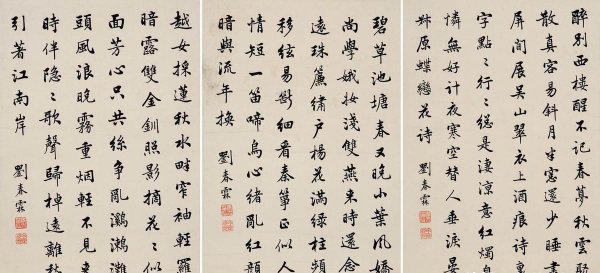 醉別西樓醒不記春夢秋雲
散真容易斜月半窗還少睡畫
屏閒展吳山翠衣上酒痕詩裏
字點〻行〻總是淒涼意紅燭
憐無好計夜寒空替人垂淚晏
叔原蝶戀花詩 劉春霖
碧草池塘春又晚小葉風嬌
尚學娥妝淺雙燕來時還念
遠珠簾繡戶楊花滿綠柱頻
移絃易斷細看秦箏正似人
情短一笛啼烏心緒亂紅顏
暗與流年換 劉春霖
越女採蓮秋水畔窄袖輕羅
暗露雙金釧照影摘花〻
面芳心只共絲爭亂鸂鶒灘
頭風浪晚霧重烟輕不見來
時伴隱〻歌聲歸棹遠離愁
引著江南岸 劉春霖